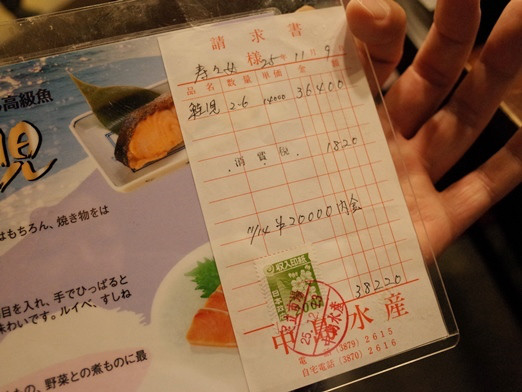 高級魚
児
はもちろん、焼き物をは
目を入れ、手でひっぱると
味わいです。ルイベ、すしね
の、野菜との煮ものに最
請求書
様 25年11月9
品名 数量 単価 金額
鮭児 2.6 14000 36400
消費税 1820
11/14 ¥20000内金
収入印紙
38220
中島水産
電話 (3879) 2615
自宅電話 (3870) 2616